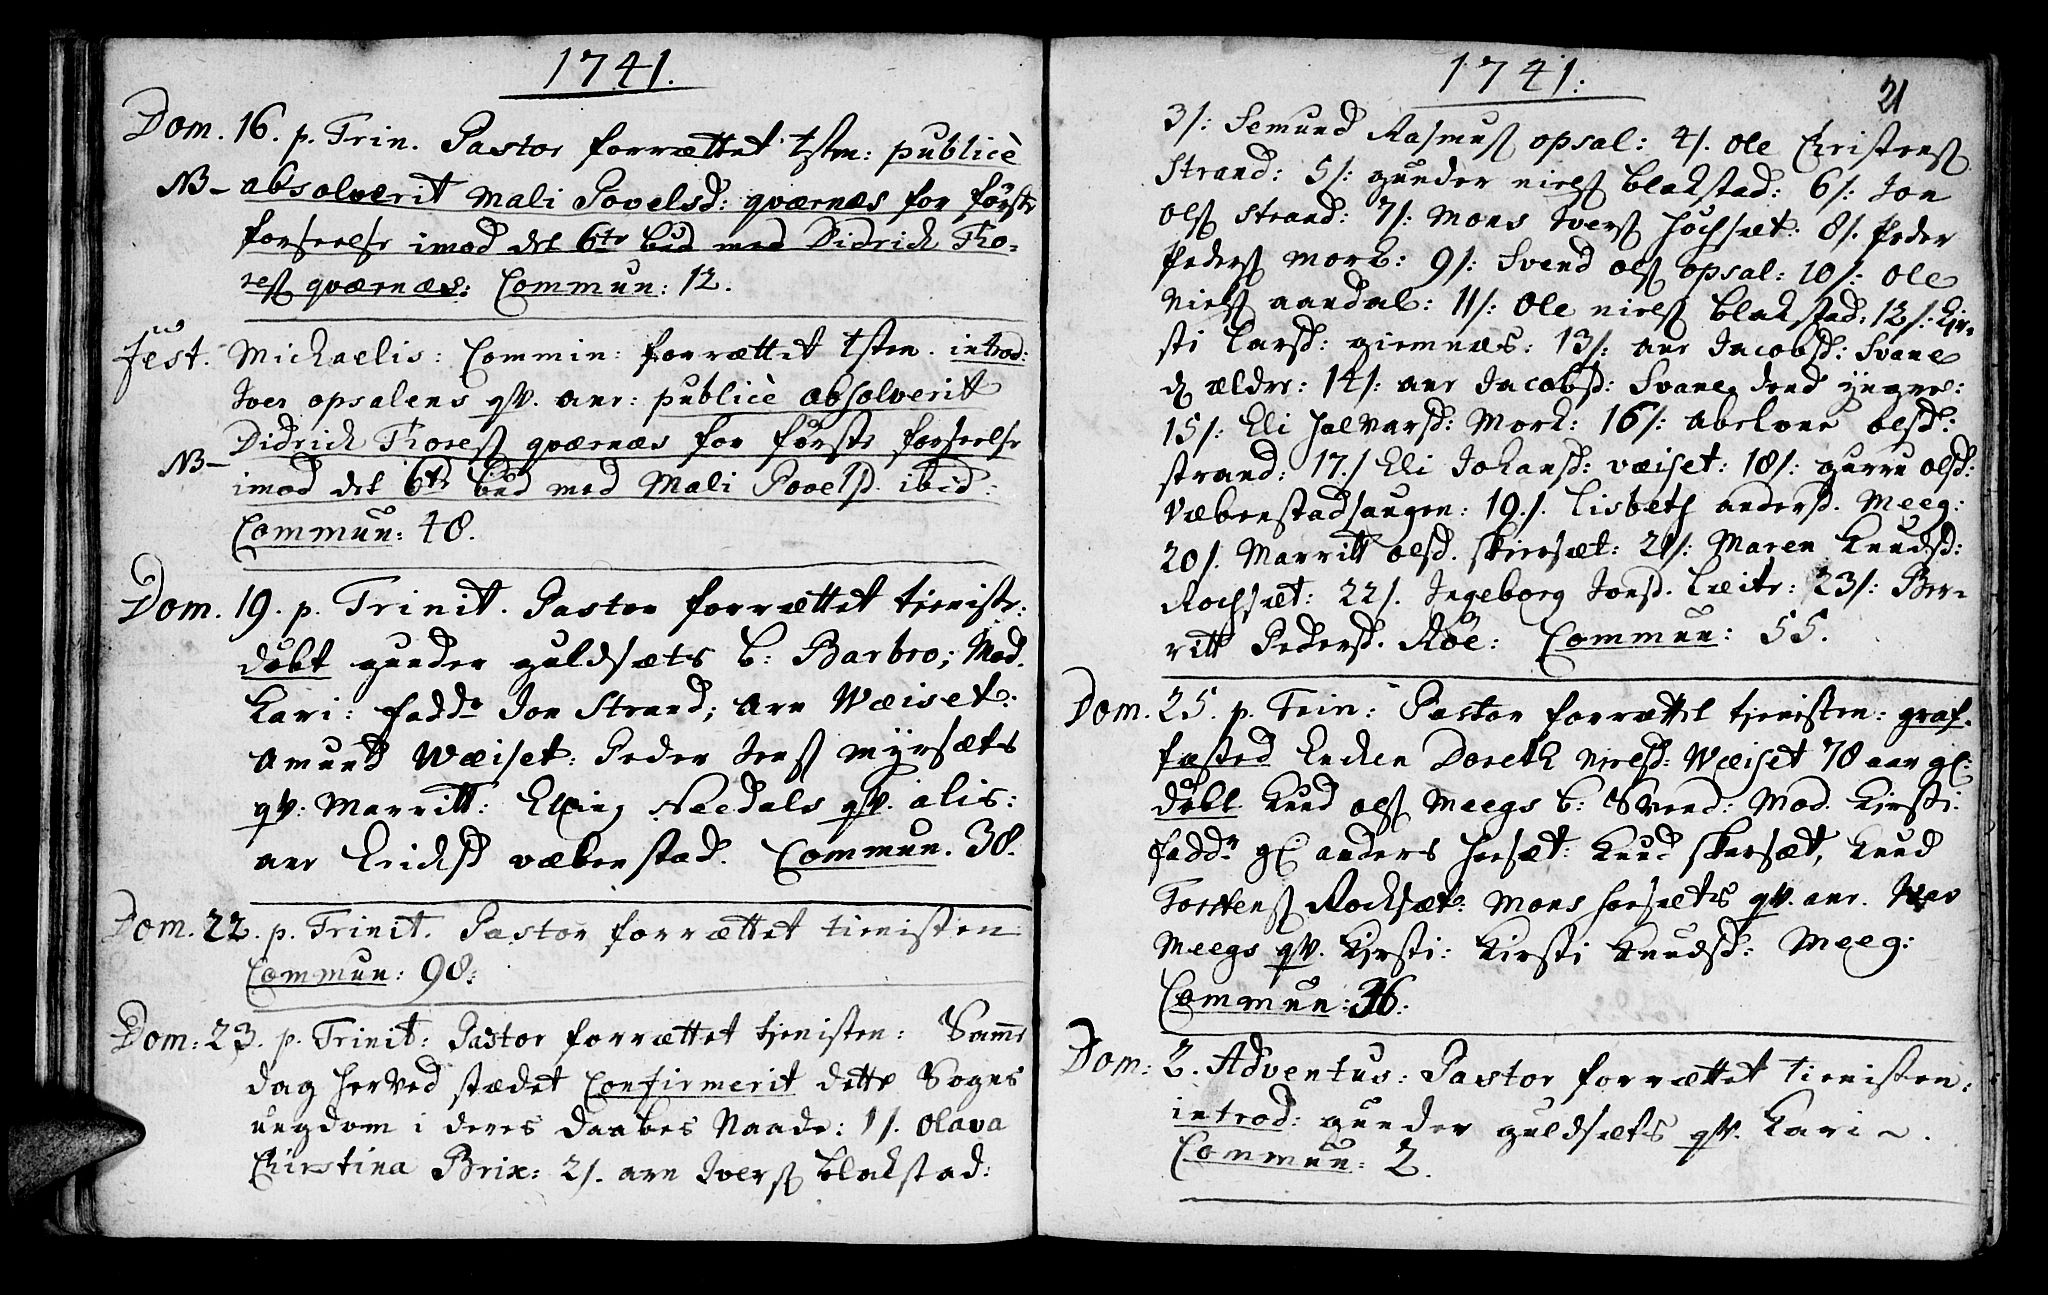 1741.
Dom. 16. p. Trin. Pastor forrættet tsten: publicè
NB - absolverit Mali Povelsd: qværnæs for første
forseelse imod det 6te bud med Didrich Tho-
res qværnæs: Commun: 12.
fest. Michaelis: Commin: forrættet tsten. introd:
Iver opsalens qv. ane: publicè absolverit
Didrich Thores qværnæs for første forseelse
NB - imod det 6te bud med Mali Povelsd. ibid:
Commun: 48.
Dom. 19. p. Trinit. Pastor forrættet tieniste:
døbt gunder guldsæts b: Barbro; Mod.
Kari: fadde Jon Strand; arn Wæiset:
Amund Wæiset: Peder Jens myrsæts
qv: Marritt: Neddals qv. alis:
ane Erichsd væbenstad. Commun. 38.
Dom. 22. p. Trinit. Pastor forrættet tienisten
Commun: 98:
Dom: 23. p. Trinit: Pastor forrættet tienisten: Samme
dag her ved stædet Confirmerit dette Sogns
ungdom i deres Daabes Naade: 1/. Olava
Christina Brix: 2/. arn Ivers blakstad:
1741:
21
3/: Semund Rasmus opsal: 4/. Ole Christens
Strand: 5/: gunder niels blakstad: 6/: Jon
Ols strand: 7/: Mons Ivers høchsæt: 8/. Peder
Peders mork: 9/: Svend ols opsal: 10/: Ole
Niels aandal: 11/: Ole niels blakstad: 12/: Kir-
sti Larsd: giemnæs: 13/: ane Jacobsd: Svane
d ældre: 14/: ane Jacobsd: Svane dend yngre:
15/: Eli Halvarsd: Mork: 16/: abelone olsd:
strand: 17./ Eli Johansd: væiset: 18/: gurru olsd:
Væbenstadhaugen: 19./. Lisbeth andersd. Meeg:
20/. Marritt olsd. skiersæt: 21/: Maren Knudsd:
Rochsæt: 22/. Ingeborg Jonsd. Læite: 23/: Ber-
ritt Pedersd. Røe: Commun: 55.
Dom. 25. p. Trin: Pastor forrættet tjenisten: graf-
fæsted Enchen Doreth Nielsd: Wæiset 78 aar gl:
døbt Knud ols Meegs b: Svend: Mod. Kirsti:
fadde gl anders hoesæt: Knud skersæt, Knud
Torstens Rochsæt: Mons hoesæts qv. ane. Iver
Meegs qv. Kirsti: Kirsti Knudsd: Meeg:
Commun: 36.
Dom: 2. Adventus: Pastor forrættet tienisten:
introd: gunder guldsæts qv. Kari ~.
Commun: 2.